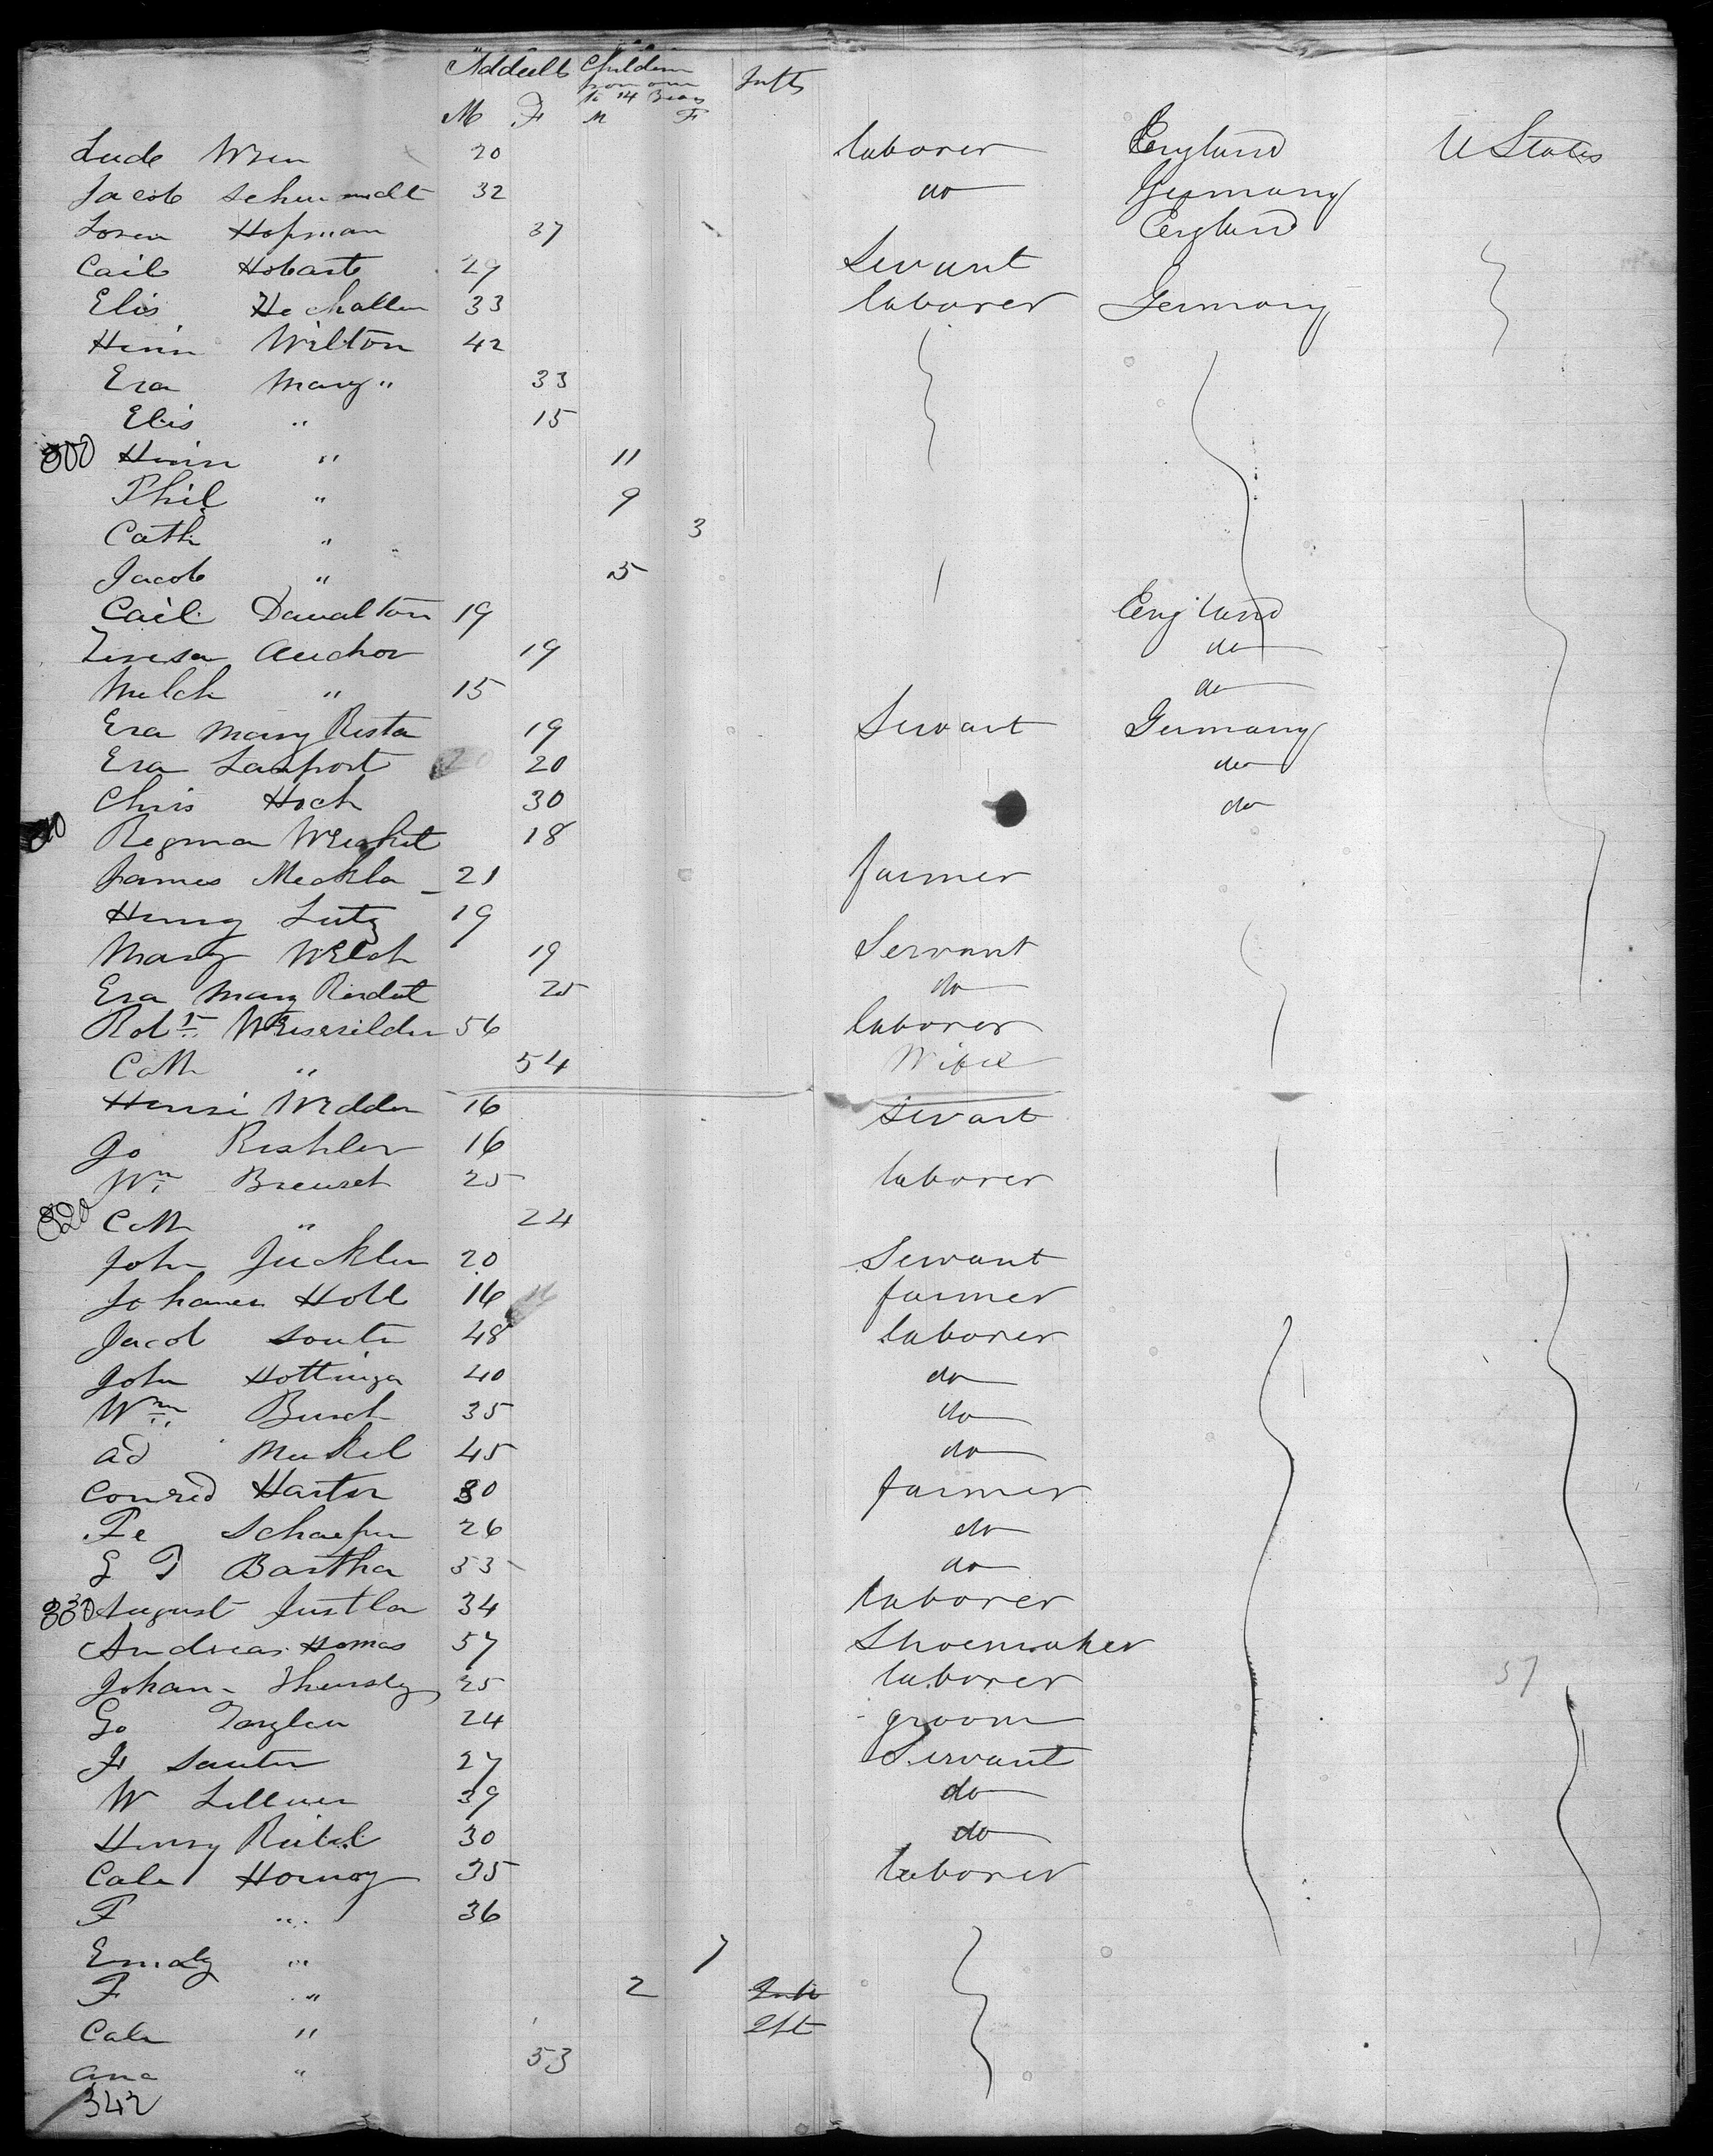 Addults Children Infts
from one
to 14 Years
M F M F
Lude Wren 20 laborer England U States
Jacob Schmmidt 32 do Germany
Loren Hofman 37 England
Cail Hobart 29 Servant
Elis 33 laborer Germany
Henri Wilton 42
Eva Mary " 33
Elis " 15
300 Henri " 11
Phil " 9
Cath " 3
Jacob " 5
Cail Davalton 19 England
Teresa Auchor 19 do
Melch " 15 do
Eva Mary Rista 19 Servant Germany
Eva Lanfrost 20 do
Chris Hoch 30 do
Regina 18
James Meckla 21 farmer
Henry Lutz 19
Mary Welch 19 Servant
Eva Mary 25 do
Robt 56 laborer
Cath " 54 Wife
Henri Wedden 16 Servant
Jo Rishler 16
Wm 25 laborer
320 Cath " 24
John Juckler 20 Servant
Johanes Holl 16 farmer
Jacob Souter 48 laborer
John Hottinga 40 do
Wm Busch 35 do
Ad Merkel 45 do
Conred Hartor 30 farmer
Fe Schaefer 26 do
G T Bartha 53 do
330 August Justla 34 laborer
Andreas Homas 57 Shoemaker
Johan 25 laborer 37
Go 24 groom
Fr Sauter 27 Servant
W 39 do
Henry 30 do
Cale Hornoy 35 laborer
F " 36
Emaly " 7
F " 2
Cale " Ift
Ana " 53
342